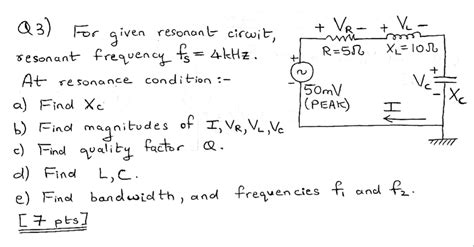 Q3) For given resonant circuit,
resonant frequency fs = 4kHz.
At resonance condition :-
a) Find Xc
b) Find magnitudes of I, VR, VL, Vc
c) Find quality factor Q.
d) Find L, C.
e) Find bandwidth, and frequencies f1 and f2.
[7 pts]
+ VR - + VL -
R=5Ω XL=10Ω
+
50mV
(PEAK)
+
Vc
-
Xc
I